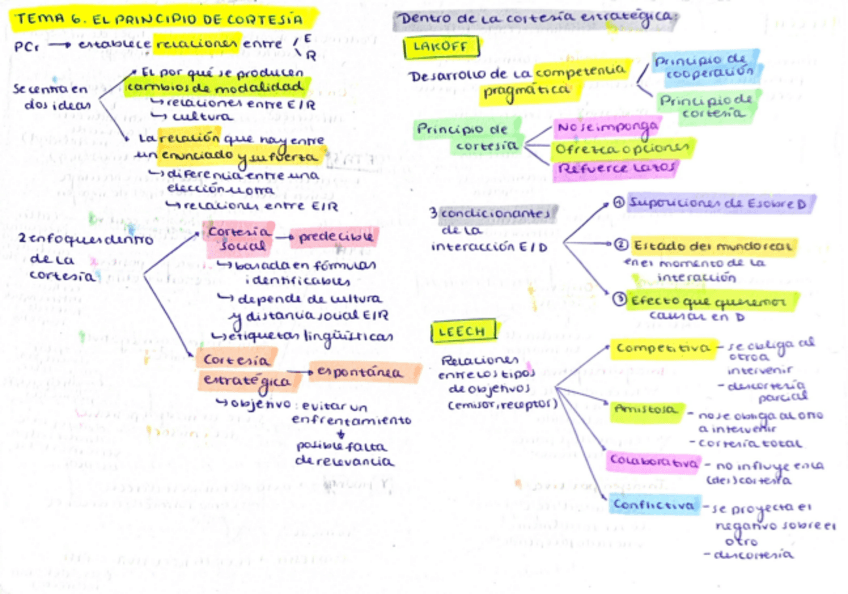 TEMA 6. EL PRINCIPIO DE CORTESÍA
PCr → establece relaciones entre E
R
Se centra en
dos ideas
El por qué se producen
cambios de modalidad
↳ relaciones entre E/R
↳ cultura
La relación que hay entre
un enunciado y su fuerza
↳ diferencia entre una
elección u otra
↳ relaciones entre E/R
2 enfoques dentro
de la
cortesía
Cortesía
social → predecible
↳ basada en fórmulas
identificables
↳ depende de cultura
y distancia social E/R
↳ etiquetas lingüísticas
Cortesía
estratégica → espontánea
↳ objetivo: evitar un
enfrentamiento
↓
posible falta
de relevancia
Dentro de la cortesía estratégica:
LAKOFF
Desarrollo de la competencia
pragmática
Principio de
cooperación
Principio de
cortesía
Principio de
cortesía
No se imponga
Ofrezca opciones
Refuerce lazos
3 condicionantes
de la
interacción E/D
① Suposiciones de E sobre D
② Estado del mundo real
en el momento de la
interacción
③ Efecto que queremos
causar en D
LEECH
Relaciones
entre los tipos
de objetivos
(emisor, receptor)
Competitiva - se obliga al
otro a
intervenir
- descortesía
parcial
Amistosa - no se obliga al otro
a intervenir
- cortesía total
Colaborativa - no influye en la
(des)cortesía
Conflictiva - se proyecta el
negativo sobre el
otro
- descortesía